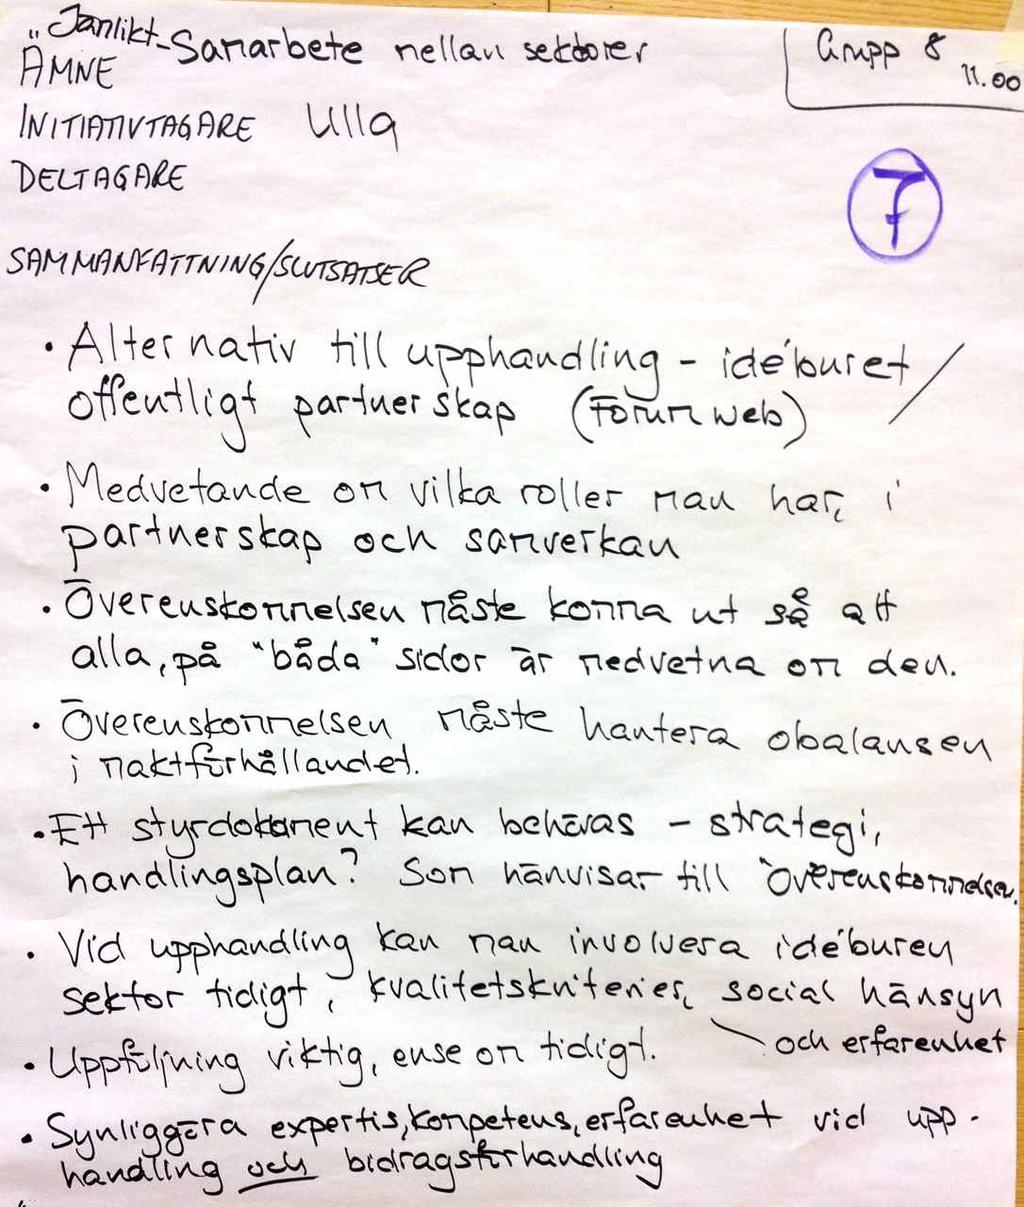 "Jämlikt-Samarbete mellan sektorer
Grupp 8
11.00
ÄMNE
INITIATIVTAGARE Ulla
DELTAGARE
7
SAMMANFATTNING/SLUTSATSER
• Alternativ till upphandling - idéburet /
offentligt partnerskap (Forum web)
• Medvetande om vilka roller man har, i
partnerskap och samverkan
• Överenskommelsen måste komma ut så att
alla, på "båda" sidor är medvetna om den.
• Överenskommelsen måste hantera obalansen
i maktförhållandet.
• Ett styrdokument kan behövas - strategi,
handlingsplan? Som hänvisar till överenskommelsen.
• Vid upphandling kan man involvera idéburen
sektor tidigt, kvalitetskriterier, social hänsyn
och erfarenhet
• Uppföljning viktig, ense om tidigt.
• Synliggöra expertis, kompetens, erfarenhet vid upp-
handling och bidragsförhandling